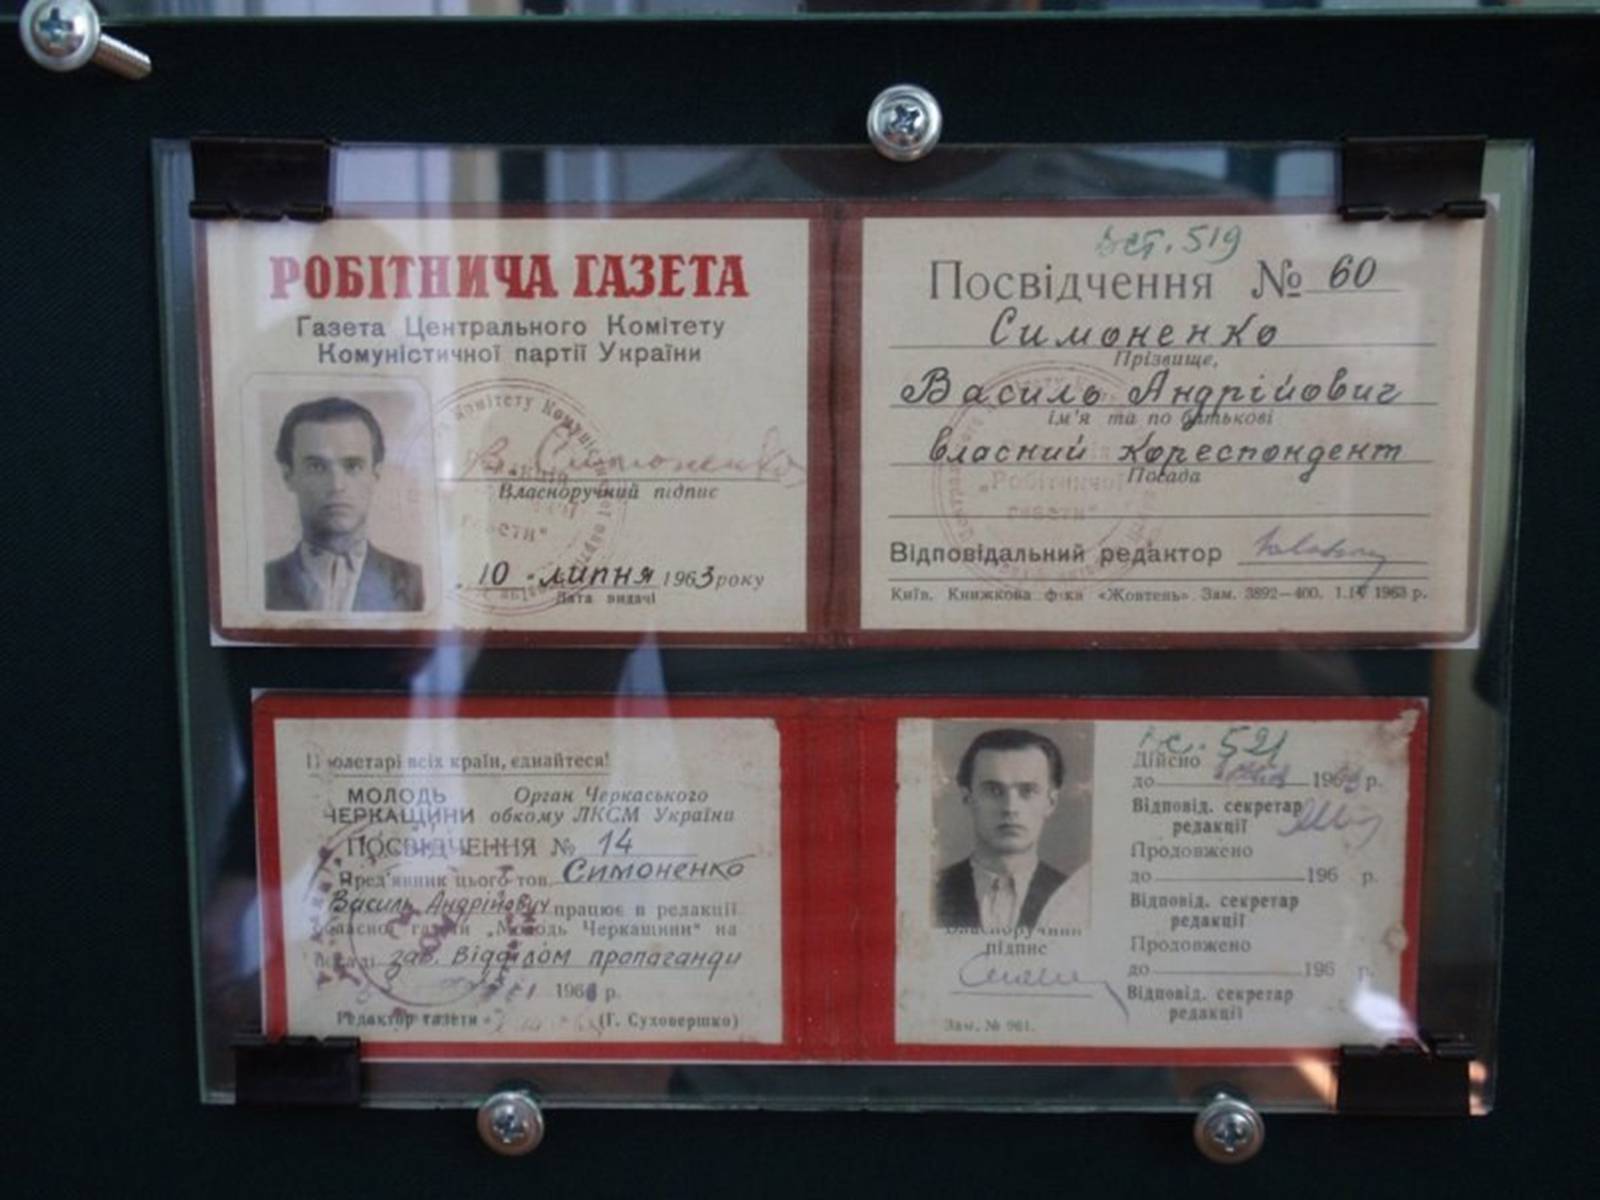 РОБІТНИЧА ГАЗЕТА
Газета Центрального Комітету
Комуністичної партії України
В. Симоненко
Власноручний підпис
10 липня 1963 року
Дата видачі
Вст. 519
Посвідчення № 60
Симоненко
Прізвище,
Василь Андрійович
ім'я та по батькові
власний кореспондент
Посада
„Робітничої
газети“
Відповідальний редактор
Київ. Книжкова ф-ка «Жовтень» Зам. 3892—400. 1963 р.
Пролетарі всіх країн, єднайтеся!
МОЛОДЬ ЧЕРКАЩИНИ
Орган Черкаського обкому ЛКСМ України
ПОСВІДЧЕННЯ № 14
Пред'явник цього тов. Симоненко
Василь Андрійович працює в редакції
обласної газети „Молодь Черкащини“ на
посаді зав. відділом пропаганди
196 р.
Редактор газети (Г. Суховершко)
Власноручний
підпис
Зам. № 961.
Вс. 521
Дійсно
до 196 р.
Відповід. секретар
редакції
Продовжено
до 196 р.
Відповід. секретар
редакції
Продовжено
до 196 р.
Відповід. секретар
редакції